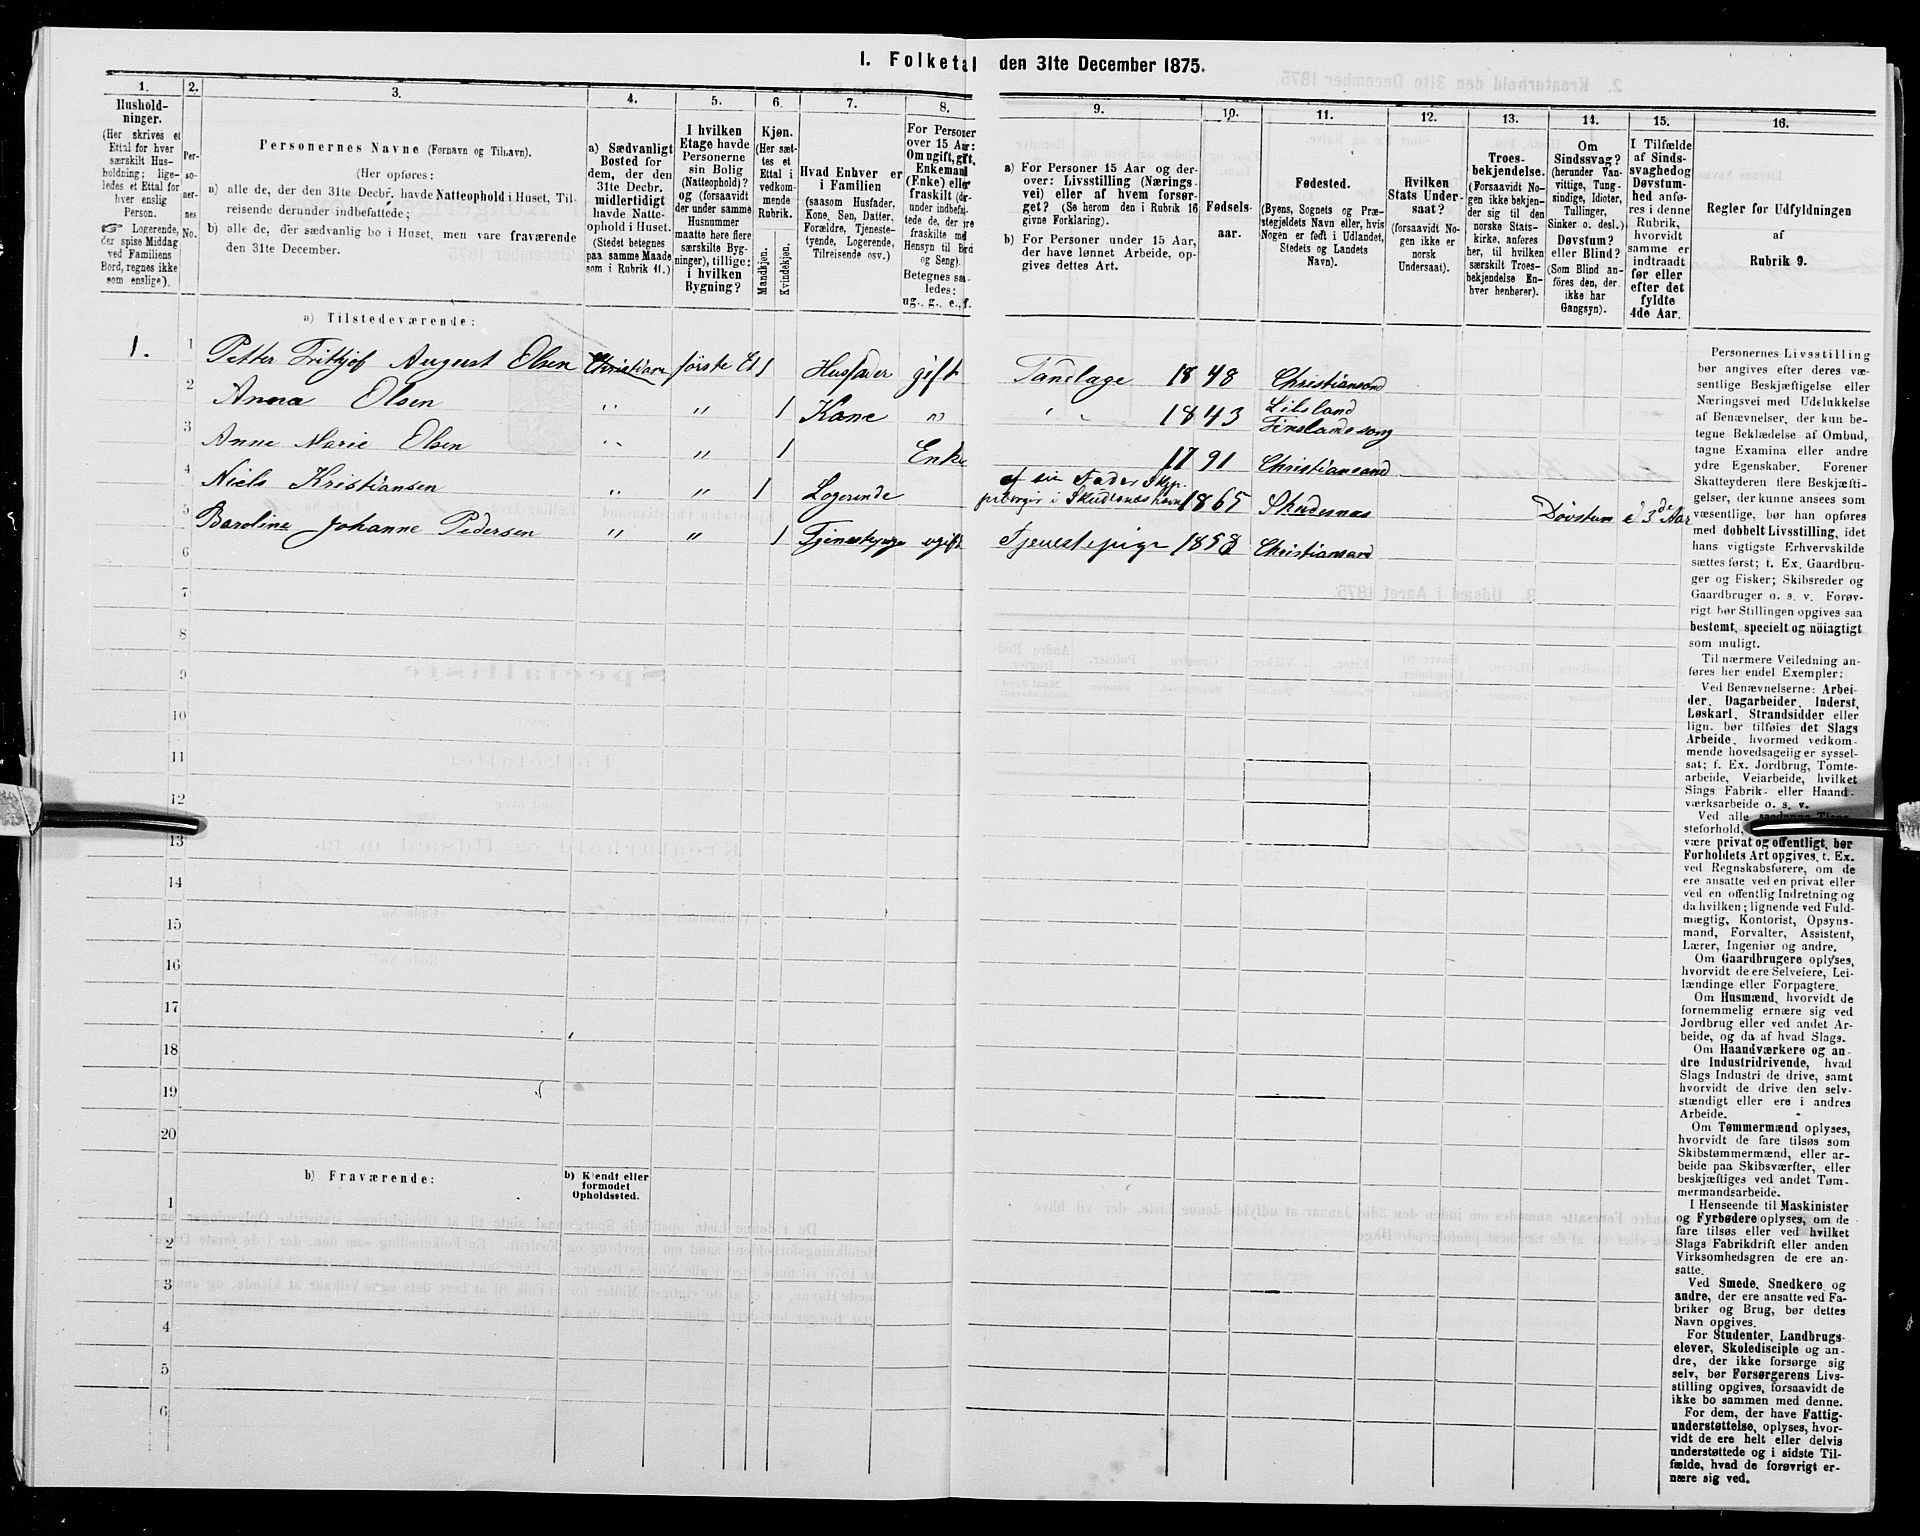 1. Folketal den 31te December 1875.
1.
Husholdninger.
(Her skrives et Ettal for hver særskilt Husholdning; ligeledes et Ettal for hver enslig Person.
☞ Logerende, der spise Middag ved Familiens Bord, regnes ikke som enslige).
2.
Personernes No.
3.
Personernes Navne (Fornavn og Tilnavn).
(Her opføres:
a) alle de, der den 31te Decbr. havde Natteophold i Huset, Tilreisende derunder indbefattede;
b) alle de, der sædvanlig bo i Huset, men vare fraværende den 31te December.
4.
a) Sædvanligt Bosted for dem, der den 31te Decbr. midlertidigt havde Natteophold i Huset.
(Stedet betegnes paa samme Maade som i Rubrik 11.)
5.
I hvilken Etage havde Personerne sin Bolig (Natteophold)? og (forsaavidt der under samme Husnummer maatte høre flere særskilte Bygninger), tillige: i hvilken Bygning?
6.
Kjøn.
(Her sættes et Ettal i vedkommende Rubrik.
Mandkjøn.
Kvindekjøn.
7.
Hvad Enhver er i Familien
(saasom Husfader, Kone, Søn, Datter, Forældre, Tjenestetyende, Logerende, Tilreisende osv.)
8.
For Personer over 15 Aar: Om ugift, gift, Enkemand (Enke) eller fraskilt
Betegnes saaledes:
ug., g., e., f.
9.
a) For Personer 15 Aar og derover: Livsstilling (Næringsvei) eller af hvem forsørget? (Se herom den i Rubrik 16 givne Forklaring).
b) For Personer under 15 Aar, der have lønnet Arbeide, opgives dettes Art.
10.
Fødselsaar.
11.
Fødested.
(Byens, Sognets og Præstegjeldets Navn eller, hvis Nogen er født i Udlandet, Stedets og Landets Navn).
12.
Hvilken Stats Undersaat?
(forsaavidt Nogen ikke er norsk Undersaat).
13.
Troesbekjendelse.
(Forsaavidt Nogen ikke bekjender sig til den norske Statskirke, anføres her, til hvilken særskilt Troesbekjendelse Enhver henhører).
14.
Om Sindssvag?
(herunder Vanvittige, Tungsindige, Idioter, Tullinger, Sinker o. desl.)
Døvstum? eller Blind?
(Som Blind anføres den, der ikke har Gangsyn).
15.
I Tilfælde af Sindssvaghed og Døvstumhed anføres i denne Rubrik, hvorvidt samme er indtraadt før eller efter det fyldte 4de Aar.
16.
Regler for Udfyldningen
af
Rubrik 9.
a) Tilstedeværende:
1. 1 Petter Frithjof August Olsen Christians første Et 1 Husfader gift Tandlæge 1848 Christiansand
2 Anna Olsen " " 1 Kone " " " 1843 Finsland
3 Anne Marie Olsen " " 1 Enke 1791 Christiansand
4 Niels Kristiansen " " 1 Logerende af sin Fader i Skudesneshavn 1865 Skudesnes Døvstum i 3de Aar
5 Baroline Johanne Pedersen " " 1 Tjenestepige ugift Tjenestepige 1858 Christiansand
6
7
8
9
10
11
12
13
14
15
16
17
18
19
20
b) Fraværende:
b) Kjendt eller formodet Opholdssted.
1
2
3
4
5
6
Personernes Livsstilling
bør angives efter deres væ-
sentlige Beskjæftigelse eller
Næringsvei med Udelukkelse
af Benævnelser, der kun be-
tegne Beklædelse af Ombud,
tagne Examina eller andre
ydre Egenskaber. Forener
Skatteyderen flere Beskjæfti-
gelser, der kunne ansees som
væsentlige, bør han opføres
med dobbelt Livsstilling, idet
hans vigtigste Erhvervskilde
sættes først; f. Ex. Gaardbru-
ger og Fisker; Skibsreder og
Gaardbruger o. s. v. Forøv-
rigt bør Stillingen opgives saa
bestemt, specielt og nöiagtigt
som muligt.
Til nærmere Veiledning an-
føres her endel Exempler:
Ved Benævnelserne: Arbei-
der, Dagarbeider, Inderst,
Løskarl, Strandsidder eller
lign. bør tilføies det Slags
Arbeide, hvormed vedkom-
mende hovedsagelig er syssel-
sat; f. Ex. Jordbrug, Tomte-
arbeide, Veiarbeide, hvilket
Slags Fabrik- eller Haand-
værksarbeide o. s. v.
Ved alle saadanne Tjene-
steforhold,
være privat og offentligt, bør
Forholdets Art opgives, f. Ex.
ved Regnskabsførere, om de
ere ansatte ved en privat eller
ved en offentlig Indretning og
da hvilken; lignende ved Fuld-
mægtig, Kontorist, Opsyns-
mand, Forvalter, Assistent,
Lærer, Ingeniør og andre.
Om Gaardbrugere oplyses,
hvorvidt de ere Selveiere, Lei-
lændinge eller Forpagtere.
Om Husmænd, hvorvidt de
fornemmelig ernære sig ved
Jordbrug eller ved andet Ar-
beide, og da af hvad Slags.
Om Haandværkere og an-
dre Industridrivende, hvad
Slags Industri de drive, samt
hvorvidt de drive den selv-
stændigt eller ere i andres
Arbeide.
Om Tømmermænd oplyses,
hvorvidt de fare tilsøs som
Skibstømmermænd, eller ar-
beide paa Skibsværfter, eller
beskjæftiges ved andet Tøm-
mermandsarbeide.
I Henseende til Maskinister
og Fyrbødere oplyses, om de
fare tilsøs eller ved hvilket
Slags Fabrikdrift eller anden
Virksomhedsgren de ere an-
satte.
Ved Smede, Snedkere og
andre, der ere ansatte ved Fa-
briker og Brug, bør dettes
Navn opgives.
For Studenter, Landbrugs-
elever, Skoledisciple og an-
dre, der ikke forsørge sig
selv, bør Forsørgerens Livs-
stilling opgives, forsaavidt de
ikke bo sammen med denne.
For dem, der have Fattig-
understøttelse, oplyses, hvor-
vidt de ere helt eller delvis
understøttede og i sidste Til-
fælde, hvad de forøvrigt er-
nære sig ved.